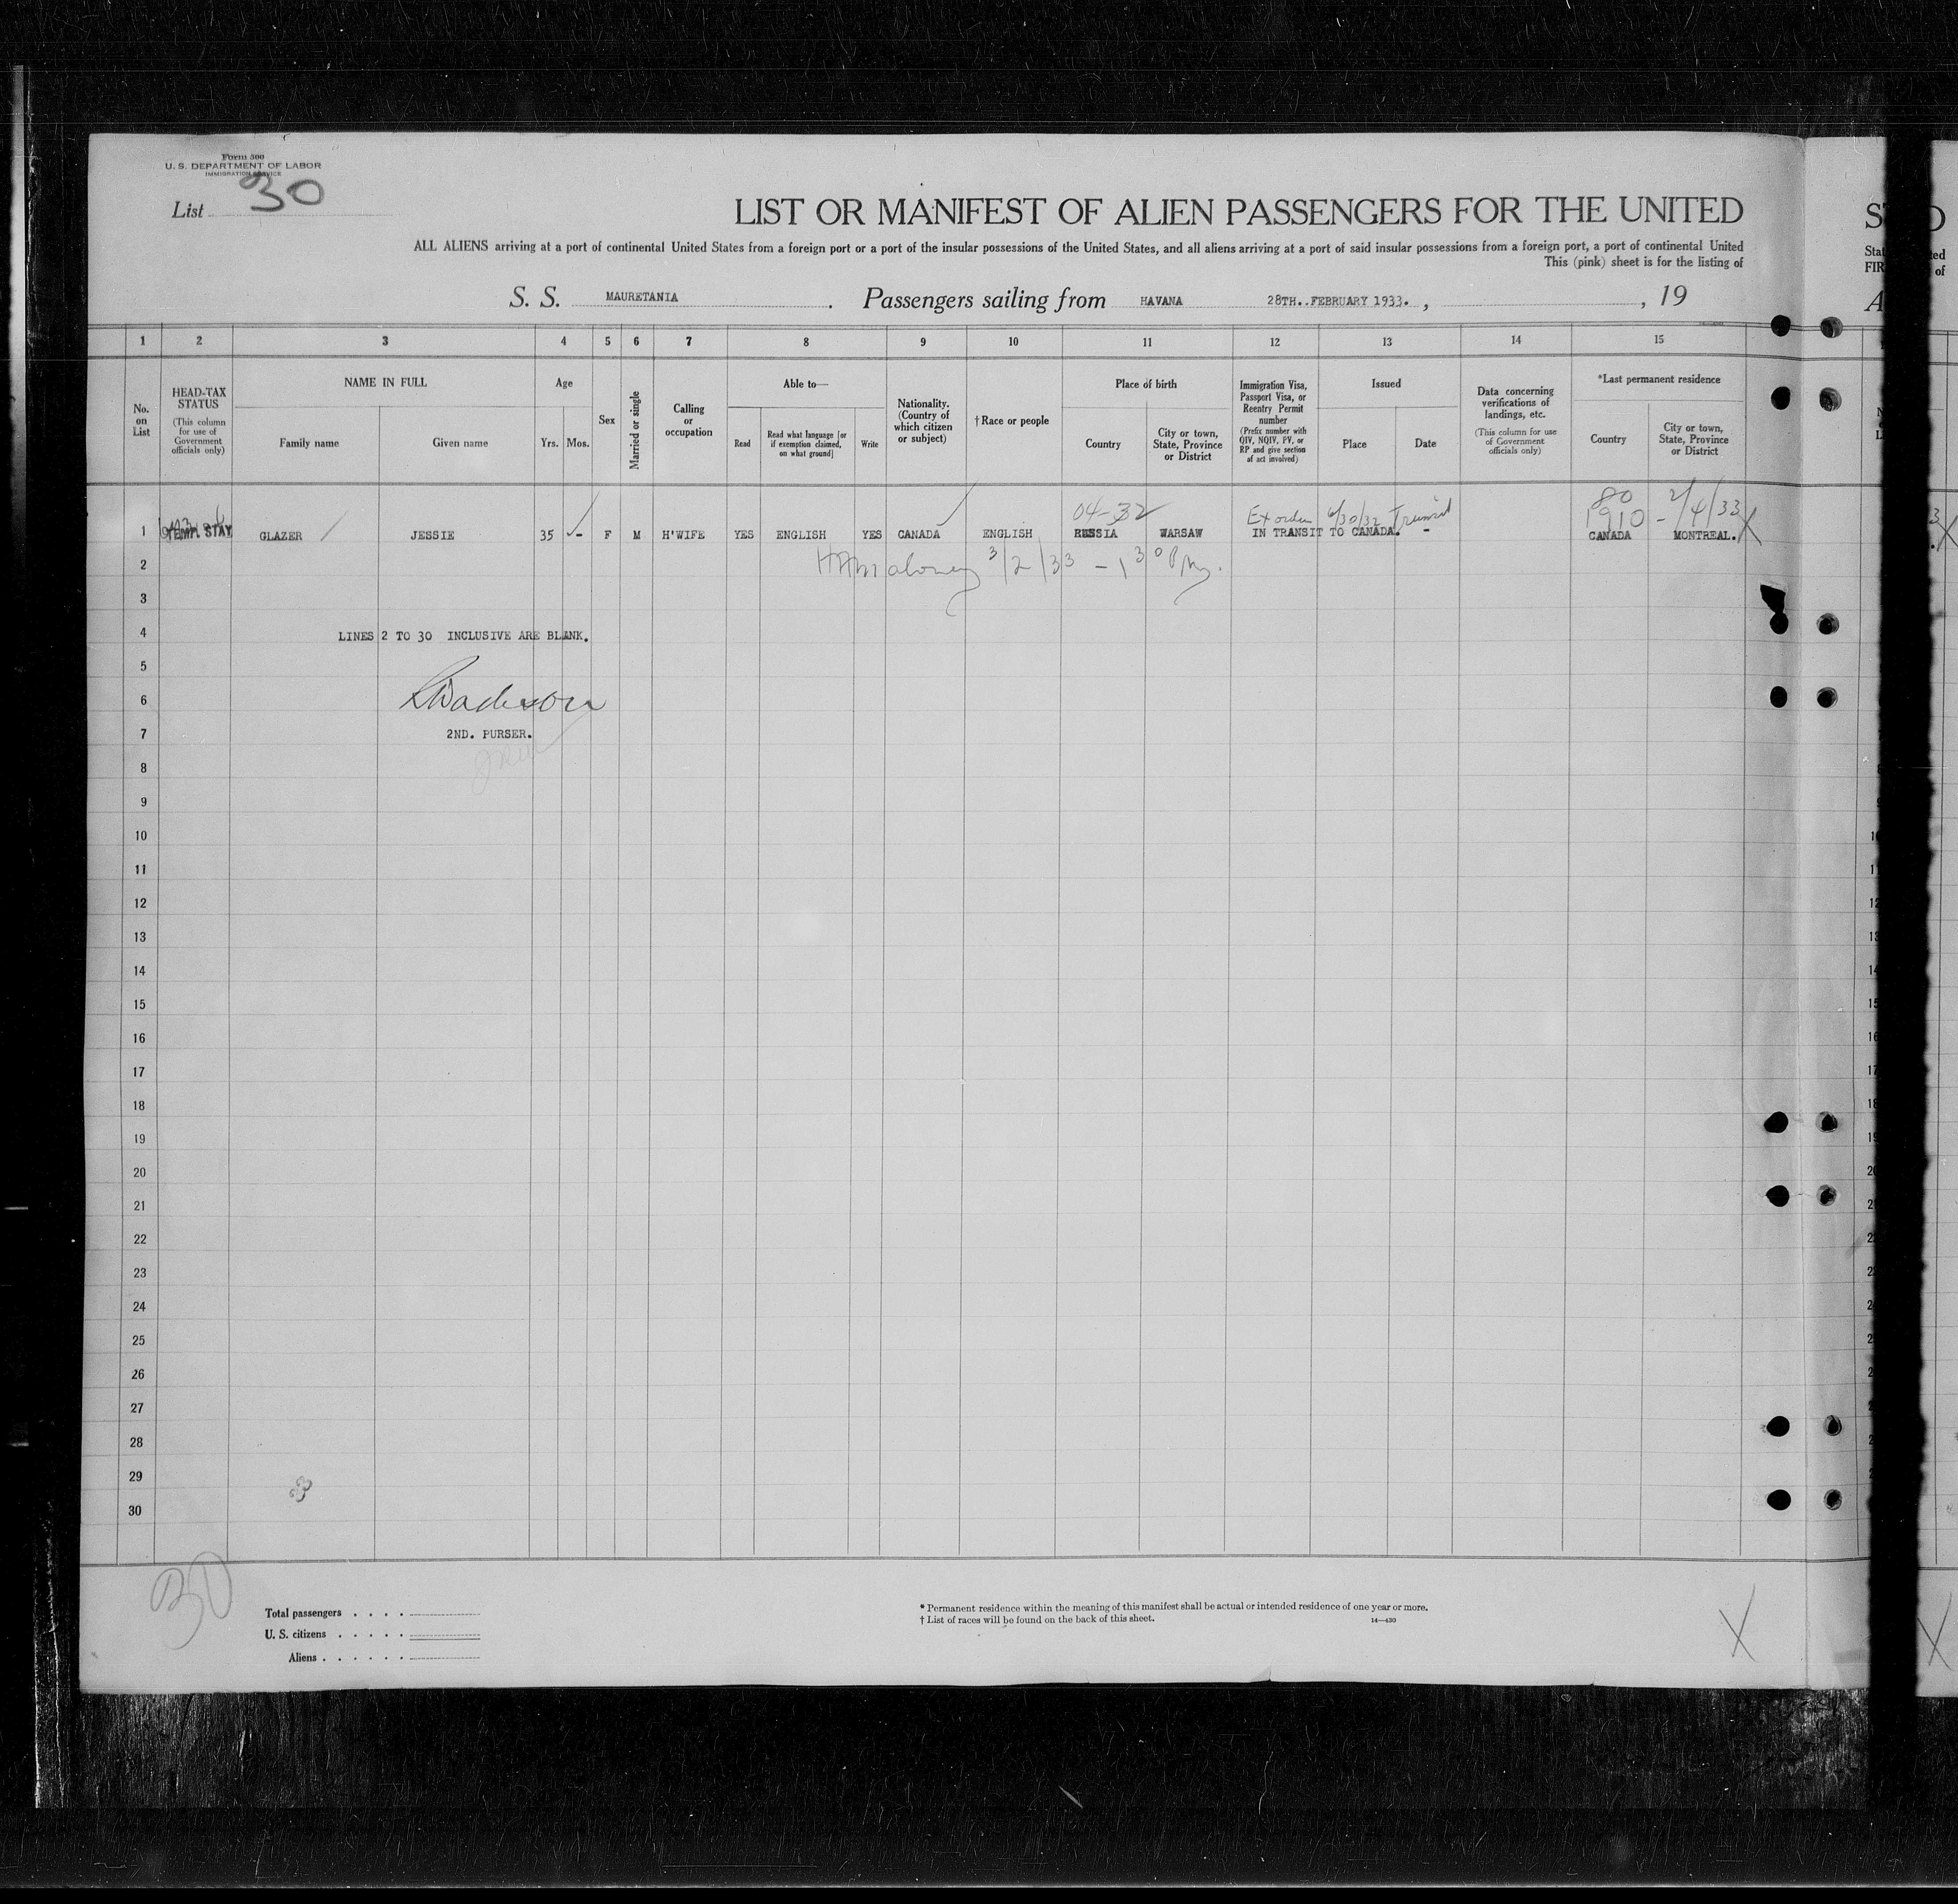 Form 500
U. S. DEPARTMENT OF LABOR
IMMIGRATION SERVICE
List 30
LIST OR MANIFEST OF ALIEN PASSENGERS FOR THE UNITED
ALL ALIENS arriving at a port of continental United States from a foreign port or a port of the insular possessions of the United States, and all aliens arriving at a port of said insular possessions from a foreign port, a port of continental United
This (pink) sheet is for the listing of
S. S. MAURETANIA. Passengers sailing from HAVANA 28TH..FEBRUARY 1933. , , 19
1 2 3 4 5 6 7 8 9 10 11 12 13 14 15
No. on List
HEAD-TAX STATUS (This column for use of Government officials only)
NAME IN FULL
Family name Given name
Age
Yrs. Mos.
Sex
Married or single
Calling or occupation
Able to—
Read Read what language [or if exemption claimed, on what ground] Write
Nationality. (Country of which citizen or subject)
†Race or people
Place of birth
Country City or town, State, Province or District
Immigration Visa, Passport Visa, or Reentry Permit number (Prefix number with QIV, NQIV, PV, or RP and give section of act involved)
Issued
Place Date
Data concerning verifications of landings, etc. (This column for use of Government officials only)
*Last permanent residence
Country City or town, State, Province or District
04-32 Ex order 6/30/32 Transit 80 1910 - 2/4/33
1 TEMP. STAY GLAZER JESSIE 35 - F M H'WIFE YES ENGLISH YES CANADA ENGLISH RUSSIA WARSAW IN TRANSIT TO CANADA. - CANADA MONTREAL. X
2 Maloney 3/2/33 - 1 30 PM.
3
4 LINES 2 TO 30 INCLUSIVE ARE BLANK.
5
6
7 2ND. PURSER.
8
9
10
11
12
13
14
15
16
17
18
19
20
21
22
23
24
25
26
27
28
29
30
30
Total passengers . . . .
U. S. citizens . . . . .
Aliens . . . . . .
* Permanent residence within the meaning of this manifest shall be actual or intended residence of one year or more.
† List of races will be found on the back of this sheet.
14—430
X